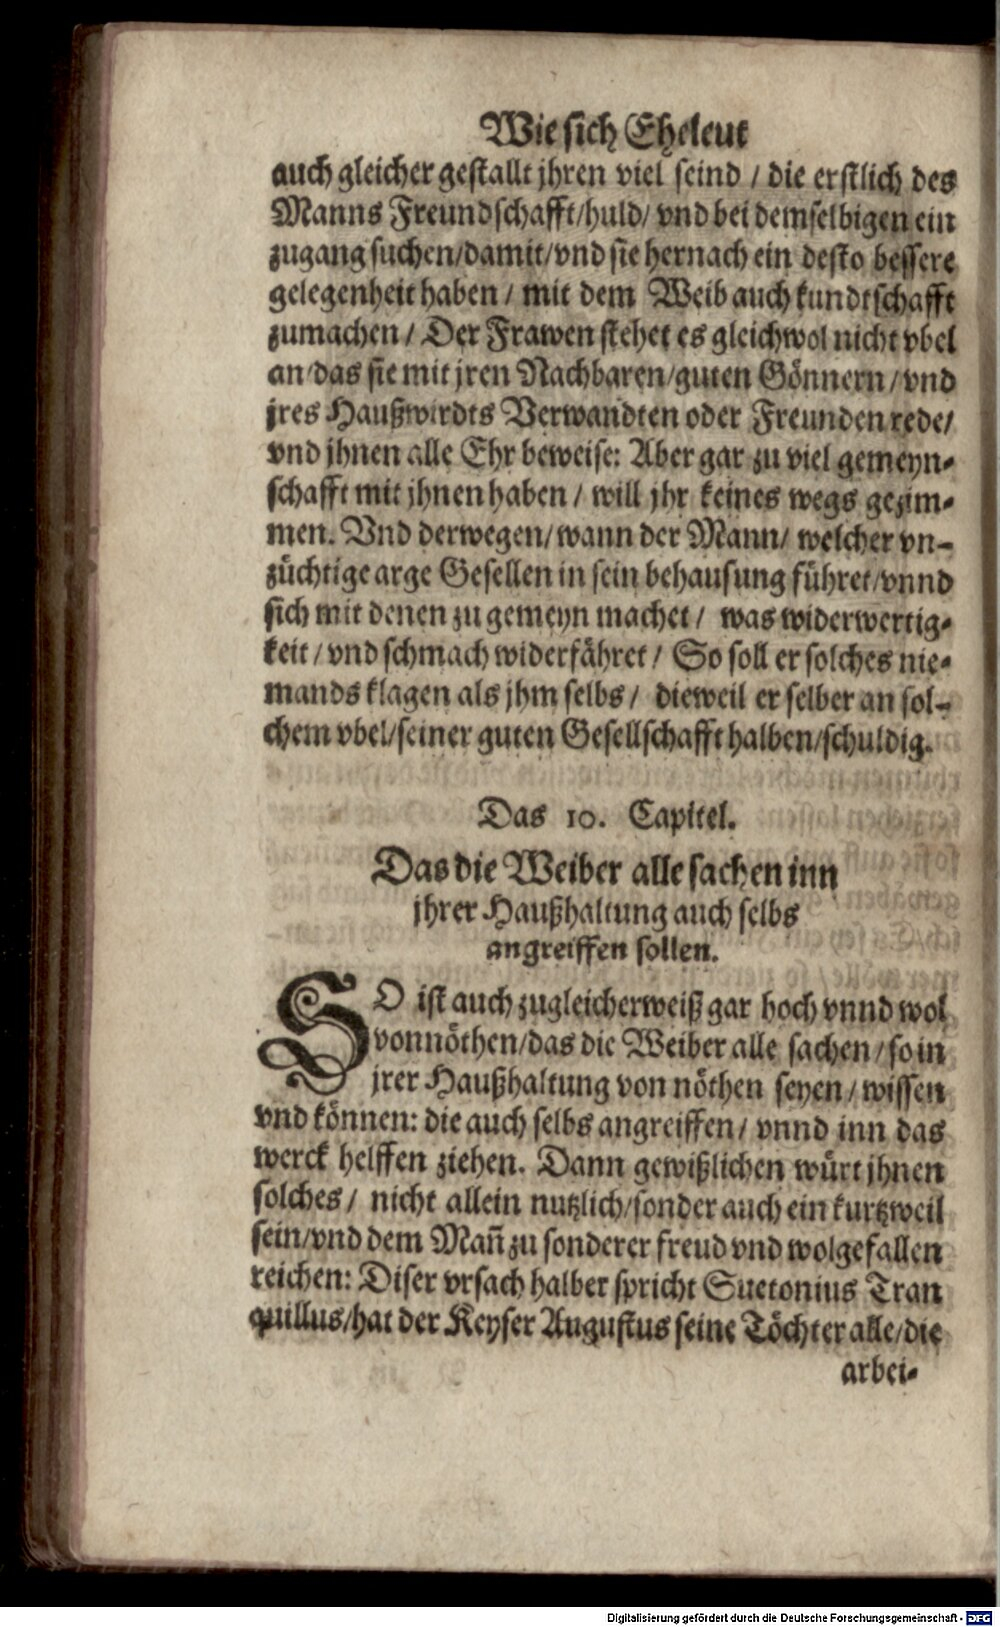 Wie sich Eheleut
auch gleicher gestallt jhren viel seind / die erstlich des
Manns Freundschafft/huld/ vnd bei demselbigen ein
zugang suchen/damit/vnd sie hernach ein desto bessere
gelegenheit haben / mit dem Weib auch kundtschafft
zumachen / Der Frawen stehet es gleichwol nicht vbel
an/das sie mit jren Nachbaren/guten Gönnern/vnd
jres Haußwirdts Verwandten oder Freunden rede/
vnd jhnen alle Ehr beweise: Aber gar zu viel gemeyn-
schafft mit jhnen haben / will jhr keines wegs gezim-
men. Vnd derwegen/wann der Mann/ welcher vn-
züchtige arge Gesellen in sein behausung führet/vnnd
sich mit denen zu gemeyn machet / was widerwertig-
keit/vnd schmach widerfähret / So soll er solches nie-
mands klagen als jhm selbs / dieweil er selber an sol-
chem vbel/seiner guten Gesellschafft halben/schuldig.
Das 10. Capitel.
Das die Weiber alle sachen inn
jhrer Haußhaltung auch selbs
angreiffen sollen.
SO ist auch zugleicherweiß gar hoch vnnd wol
vonnöthen/das die Weiber alle sachen/so in
jrer Haußhaltung von nöthen seyen/wissen
vnd können: die auch selbs angreiffen/ vnnd inn das
werck helffen ziehen. Dann gewißlichen würt jhnen
solches/ nicht allein nutzlich/sonder auch ein kurtzweil
sein/vnd dem Mañ zu sonderer freud vnd wolgefallen
reichen: Diser vrsach halber spricht Suetonius Tran
quillus/hat der Keyser Augustus seine Töchter alle/die
arbei-
Digitalisierung gefördert durch die Deutsche Forschungsgemeinschaft - DFG